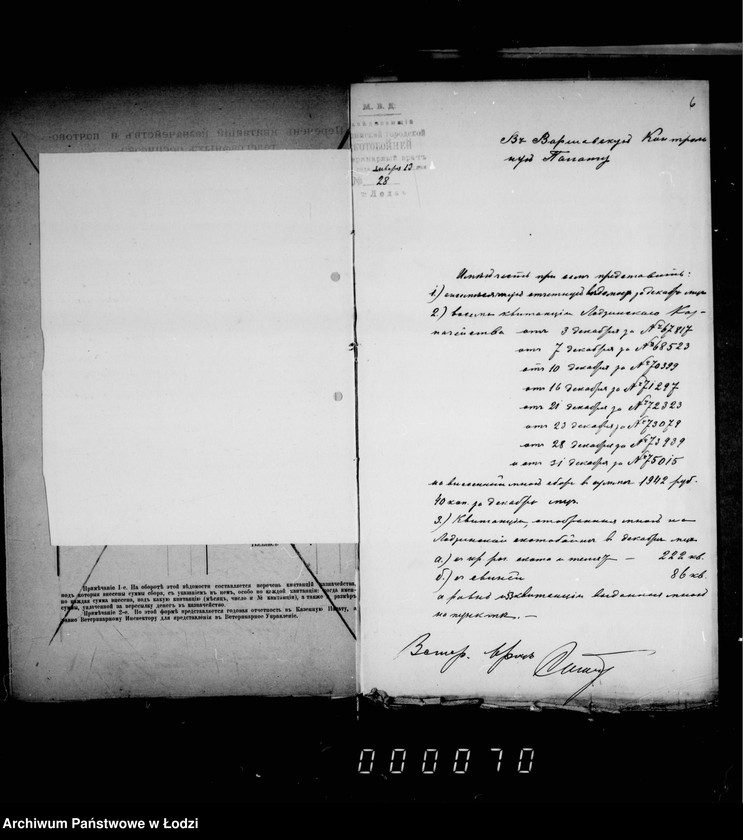 Примѣчаніе 1-е. На оборотѣ этой вѣдомости составляется перечень квитанцій казначейства,
подъ которыя внесены суммы сбора, съ указаніемъ въ немъ, особо по каждой квитанціи: когда имен-
но каждая сумма внесена, подъ какую квитанцію (мѣсяцъ, число и № квитанціи), а также размѣръ
суммы, уплаченной за пересылку денегъ въ казначейство.
Примѣчаніе 2-е. По этой формѣ представляется годовая отчетность въ Казенную Палату, а
Ветеринарному Инспектору для представленія въ Ветеринарное Управленіе.
6
М. В. Д.
городской
января 12
28
г. Лодзь
Въ Варшавскую Контроль
ную Палату
Имѣю честь при семъ представить:
1.) отчетную вѣдомость за декабрь мцъ
2.) восемь квитанцій Лодзинскаго Каз-
начейства отъ 3 декабря за № 67817
отъ 7 декабря за № 68523
отъ 10 декабря за № 70399
отъ 16 декабря за № 71297
отъ 21 декабря за № 72323
отъ 23 декабря за № 73079
отъ 28 декабря за № 73939
и отъ 31 декабря за № 75015
на внесенный мною сборъ в суммѣ 1942 руб.
40 коп. за декабрь мцъ.
3.) Квитанціи, отобранныя мною на
Лодзинской скотобойнѣ в декабрѣ мцѣ
а.) съ кр. рог. скота и телятъ — 222 кв.
б.) съ свиней 86 кв.
а равно и квитанціи выданныя мною
на пунктѣ. —
Ветер. врачъ
000070
Archiwum Państwowe w Łodzi